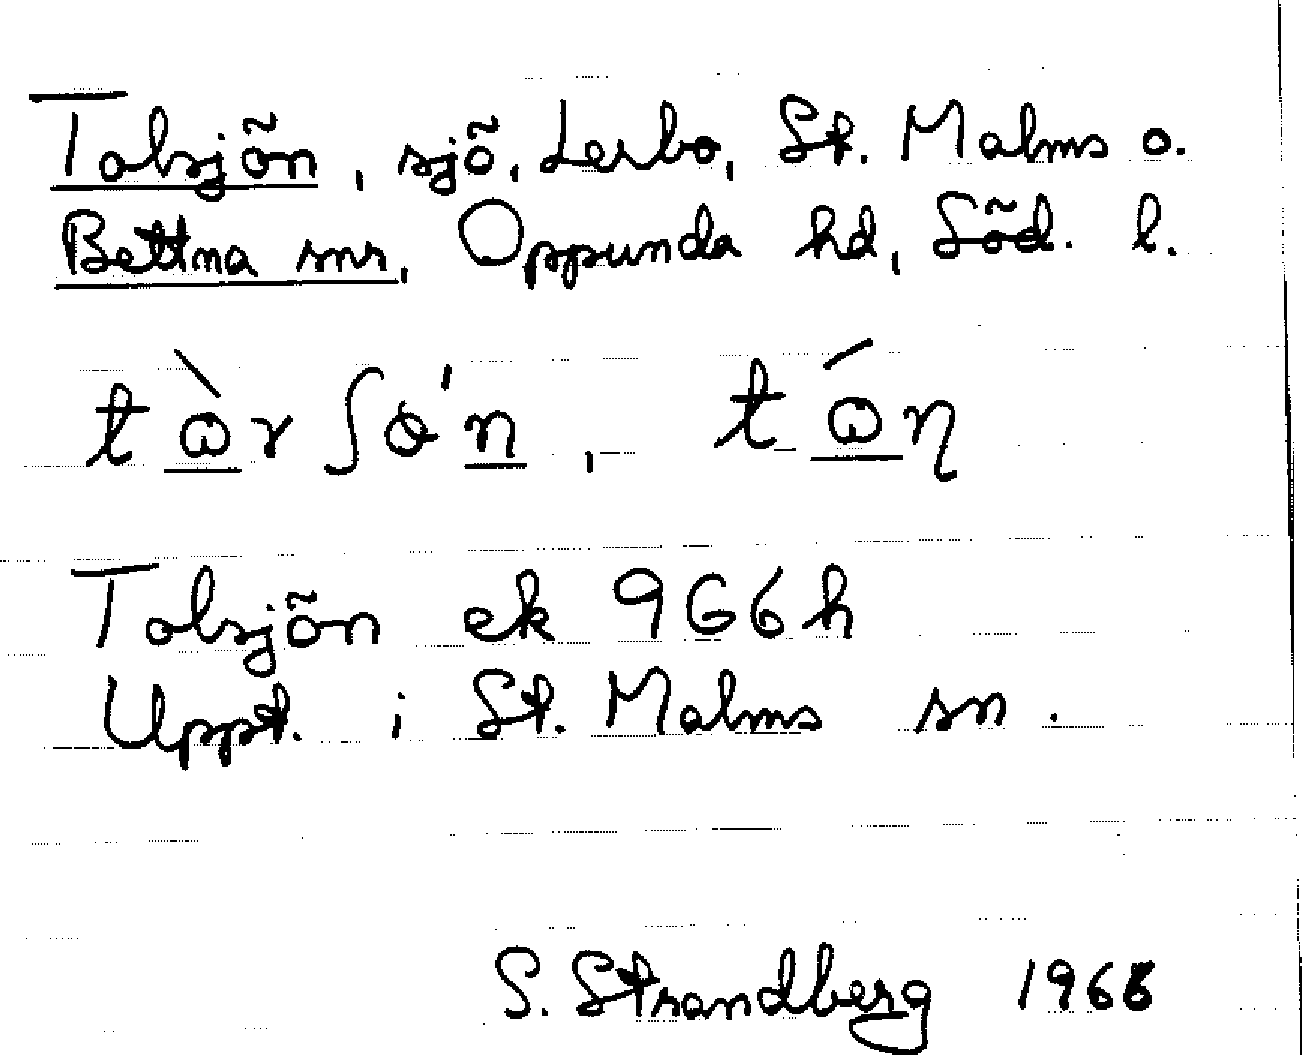 Tolsjön, sjö, Lerbo, St. Malms o.
Bettna snr, Oppunda hd, Söd. l.
Tolsjön ek 9G6h
Uppt. i St. Malms sn.
S. Strandberg 1966